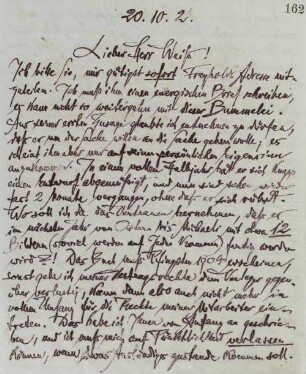 162
20. 10. 2.
Lieber Herr Weiß!
Ich bitte Sie, mir gütigst sofort Freyholds Adresse mit-
zuteilen. Ich muß ihm einen energischen Brief schreiben,
es kann nicht so weitergehn mit dieser Bummelei.
Aus seiner ersten Zusage glaubte ich entnehmen zu dürfen,
daß er um der Sache willen an die Sache gehen wolle; es
scheint ihm aber nur auf seinen persönlichen
anzukommen. In einem vollen Halbjahr hat er sich knapp
einen Entwurf abgemüßigt, und nun sind schon wieder
fast 2 Monate vergangen, ohne daß er sich rührt.
Wo soll ich da das Vertrauen hernehmen, daß er
im nächsten Jahr von Ostern bis Michaeli mit etwa 12
Bildern (soviel werden auf Jeden kommen) fertig werden
wird?! Das Buch muß Pfingsten 1904 erscheinen,
sonst gehe ich meiner Vertragsrechte dem Verleger gegen-
über verlustig, kann dann also auch nicht mehr in
vollem Umfang für die Rechte meiner Mitarbeiter ein-
treten. Das habe ich Ihnen von Anfang an geschrie-
ben, und ich muß mich auf Pünktlichkeit verlassen
können, wenn etwas Anständiges zustande kommen soll.